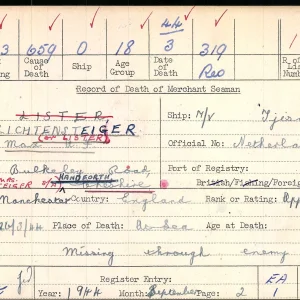 3 659 0 18 44 3 319 Reo
Cause of Death Ship Age Group Date of Death R. of Number
Record of Death of Merchant Seaman
LISTER, Ship: M/V
LICHTENSTEIGER
(or LISTER) Official No: Netherla
Max
Port of Registry:
Road, HANDFORTH, Cheshire British/Fishing/Foreign
Manchester Country: England Rank or Rating: App
/3/44 Place of Death: At Sea Age at Death:
Missing through enemy
Register Entry: EA
Year: 1944 Month: September Page: 2 1